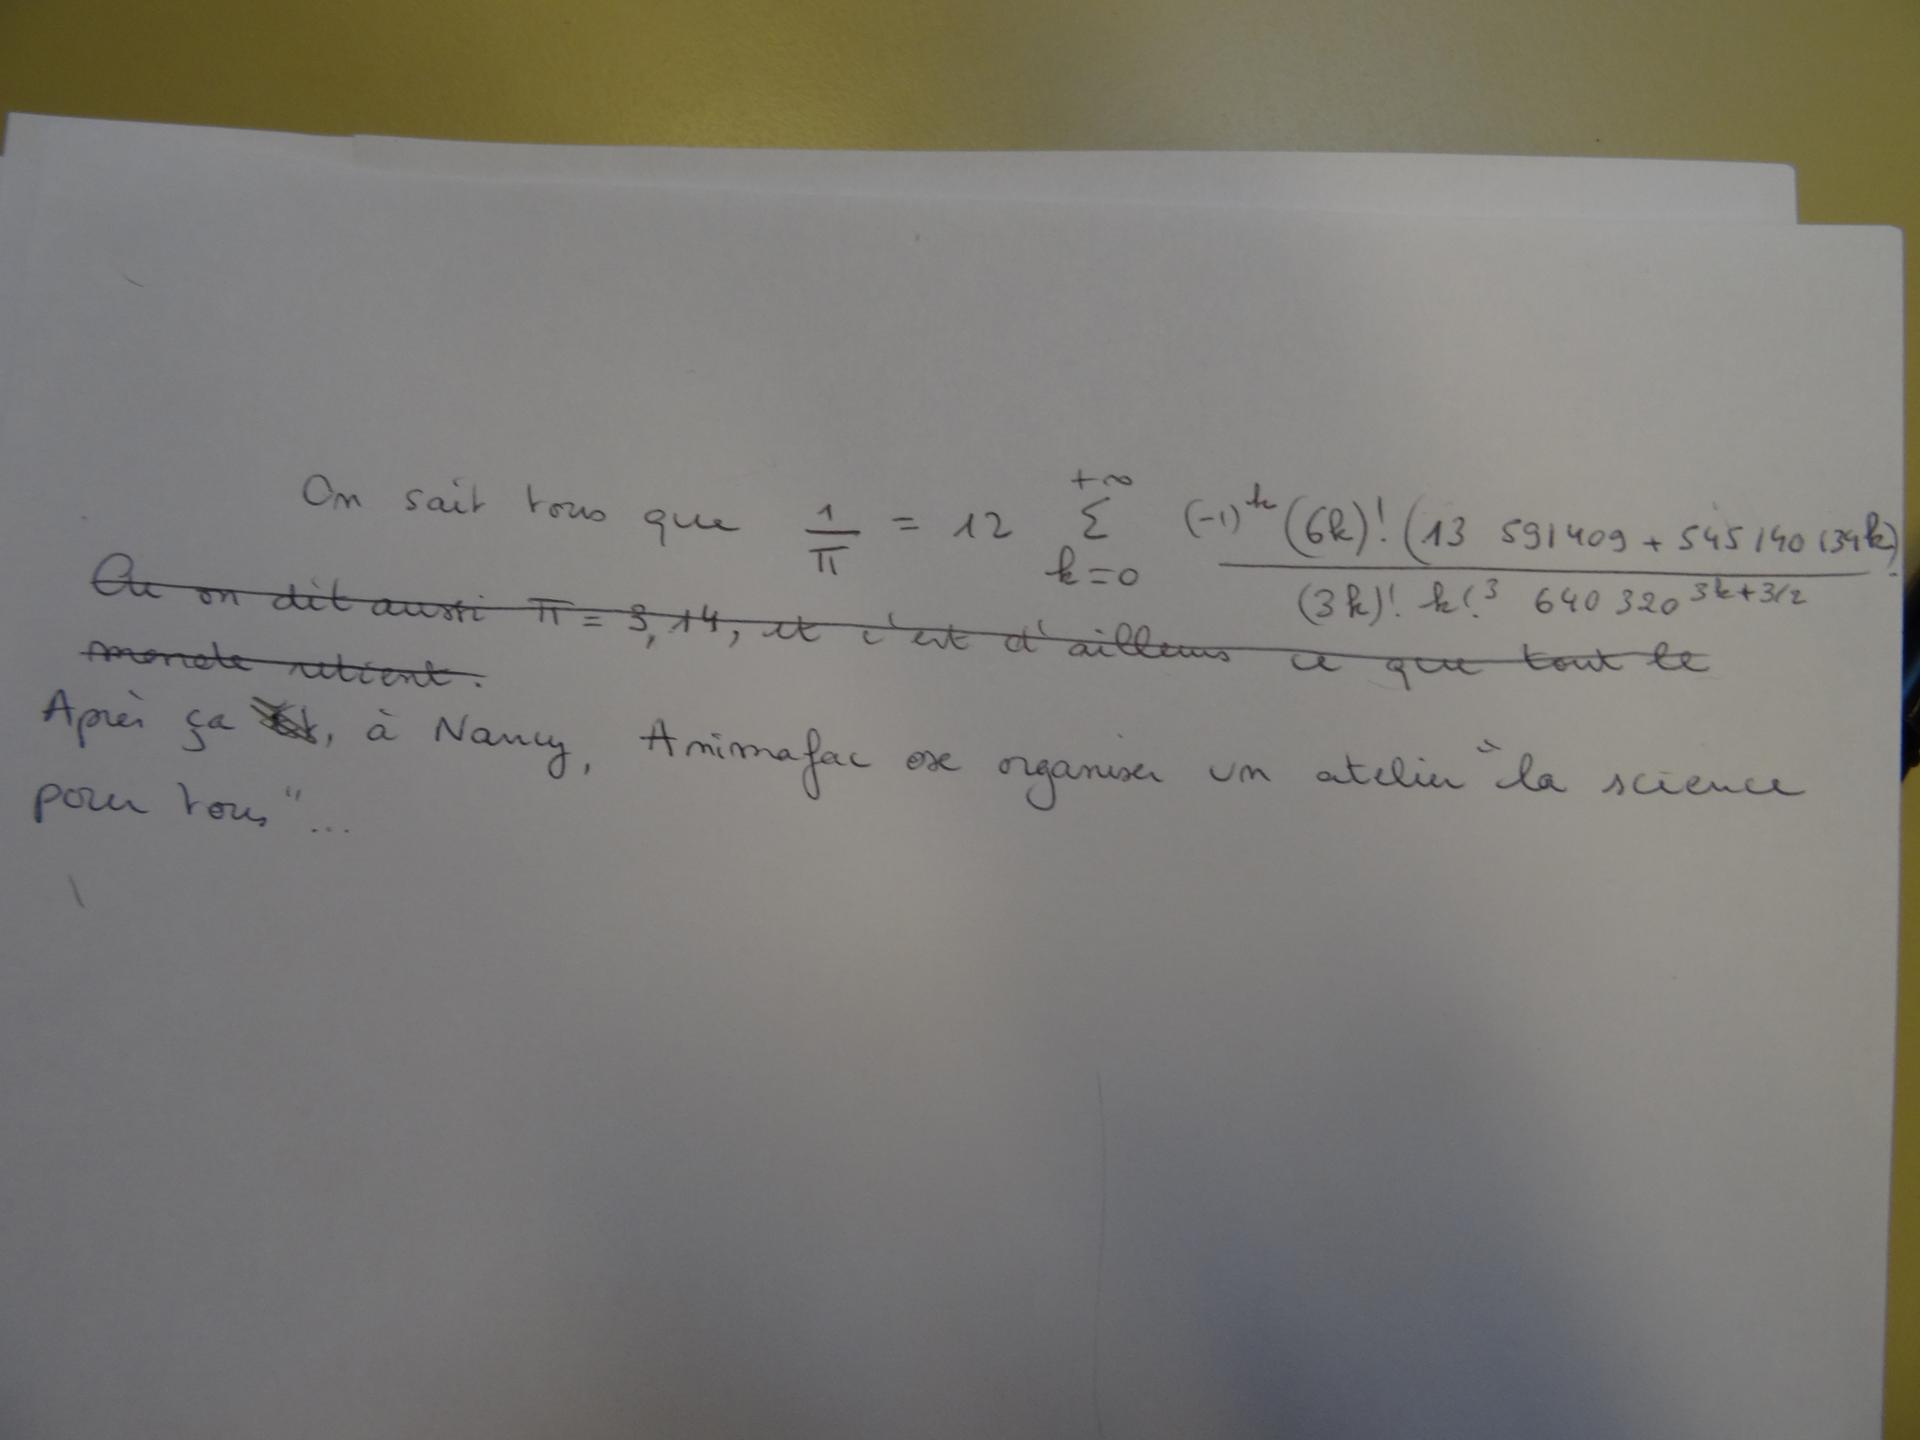 On sait tous que 1/π = 12 Σ_{k=0}^{+∞} (-1)^k (6k)! (13 591409 + 545 140 134k) / (3k)! k!^3 640 320^{3k+3/2}
Ou on dit aussi π = 3,14, et c'est d'ailleurs ce que tout le
monde retient.
Après ça, à Nancy, Animafac ose organiser un atelier "la science
pour tous"...